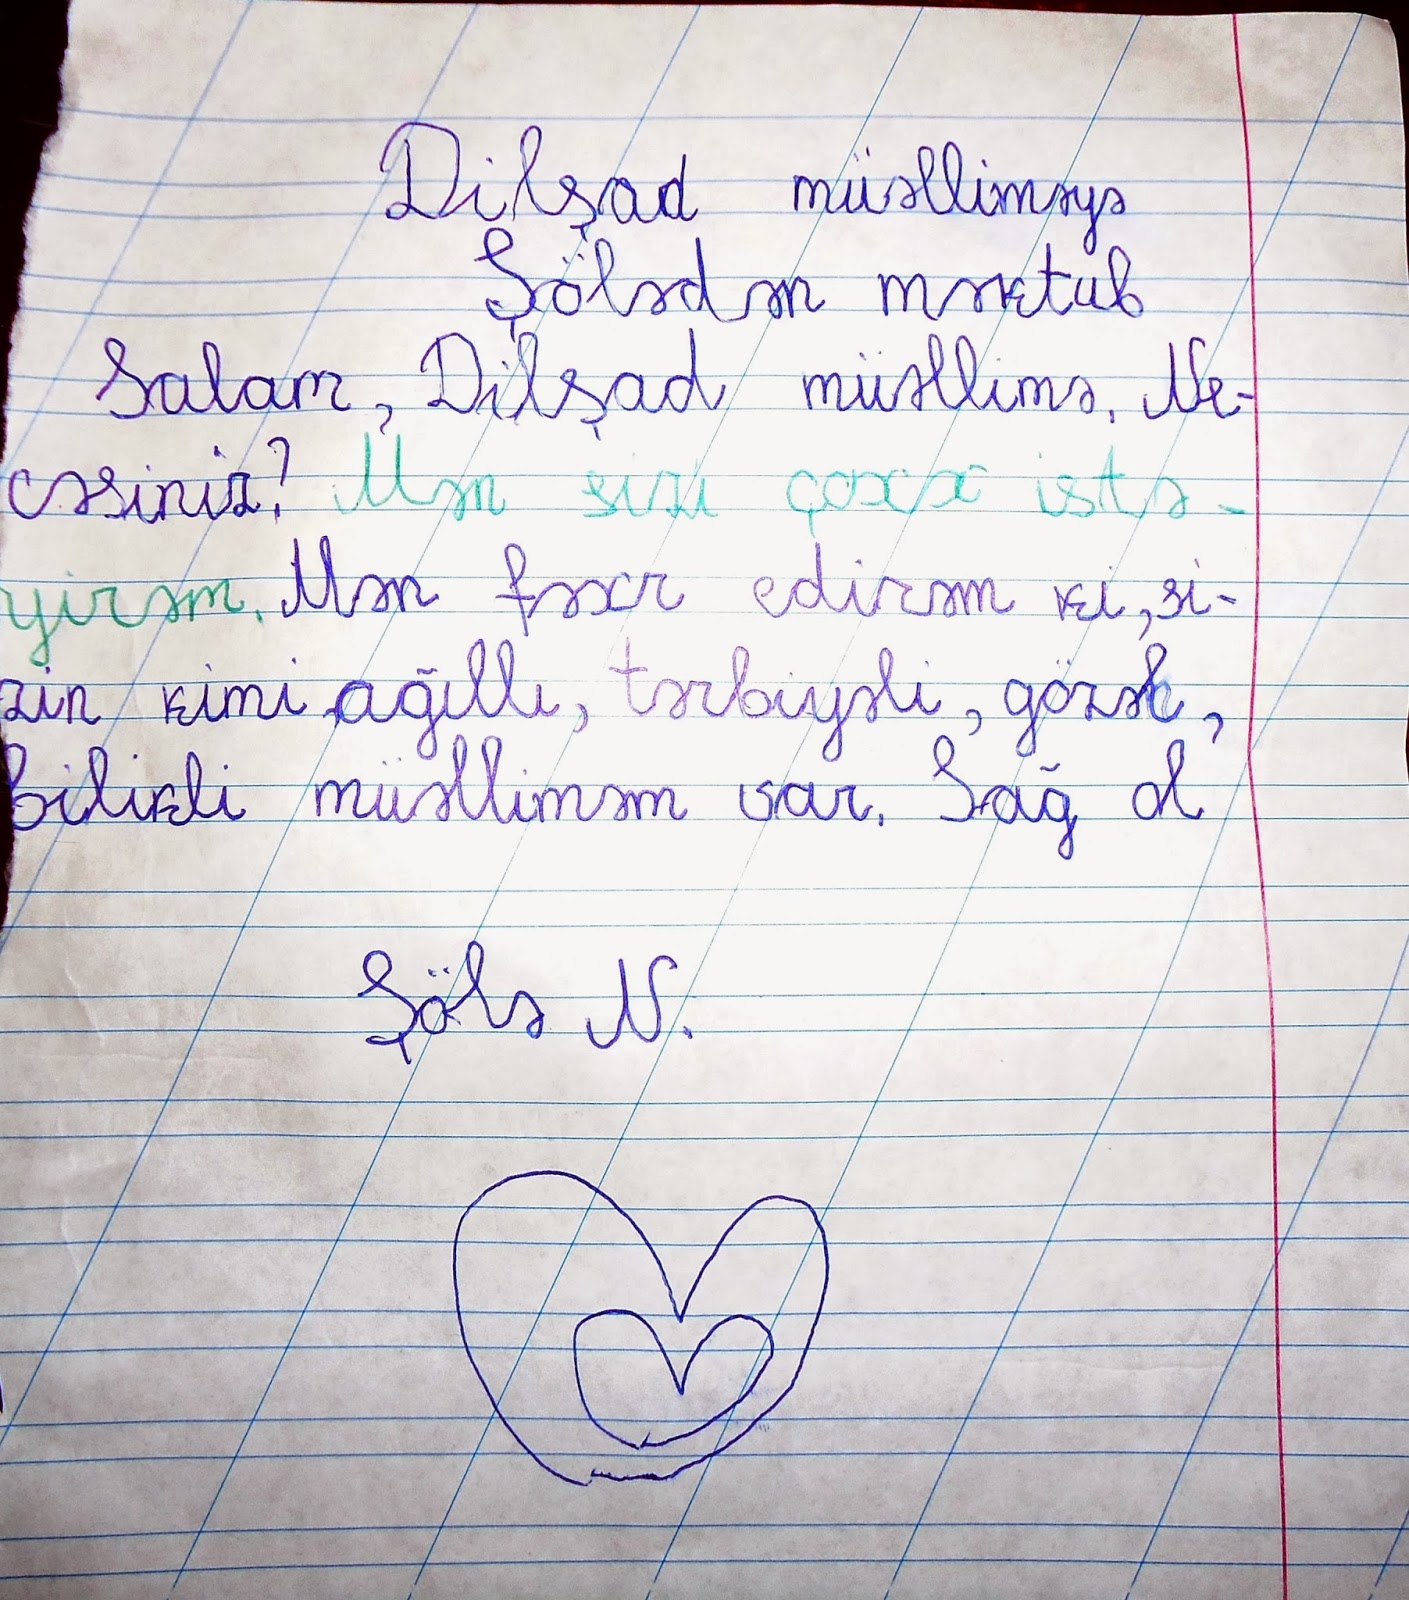 Dilşad müəlliməyə
Şölədən məktub
Salam, Dilşad müəllimə. Ne-
cəsiniz? Mən sizi çoxx istə-
yirəm. Mən fəxr edirəm ki, si-
zin kimi ağıllı, tərbiyəli, gözəl,
bilikli müəlliməm var. Sağ ol
Şölə N.